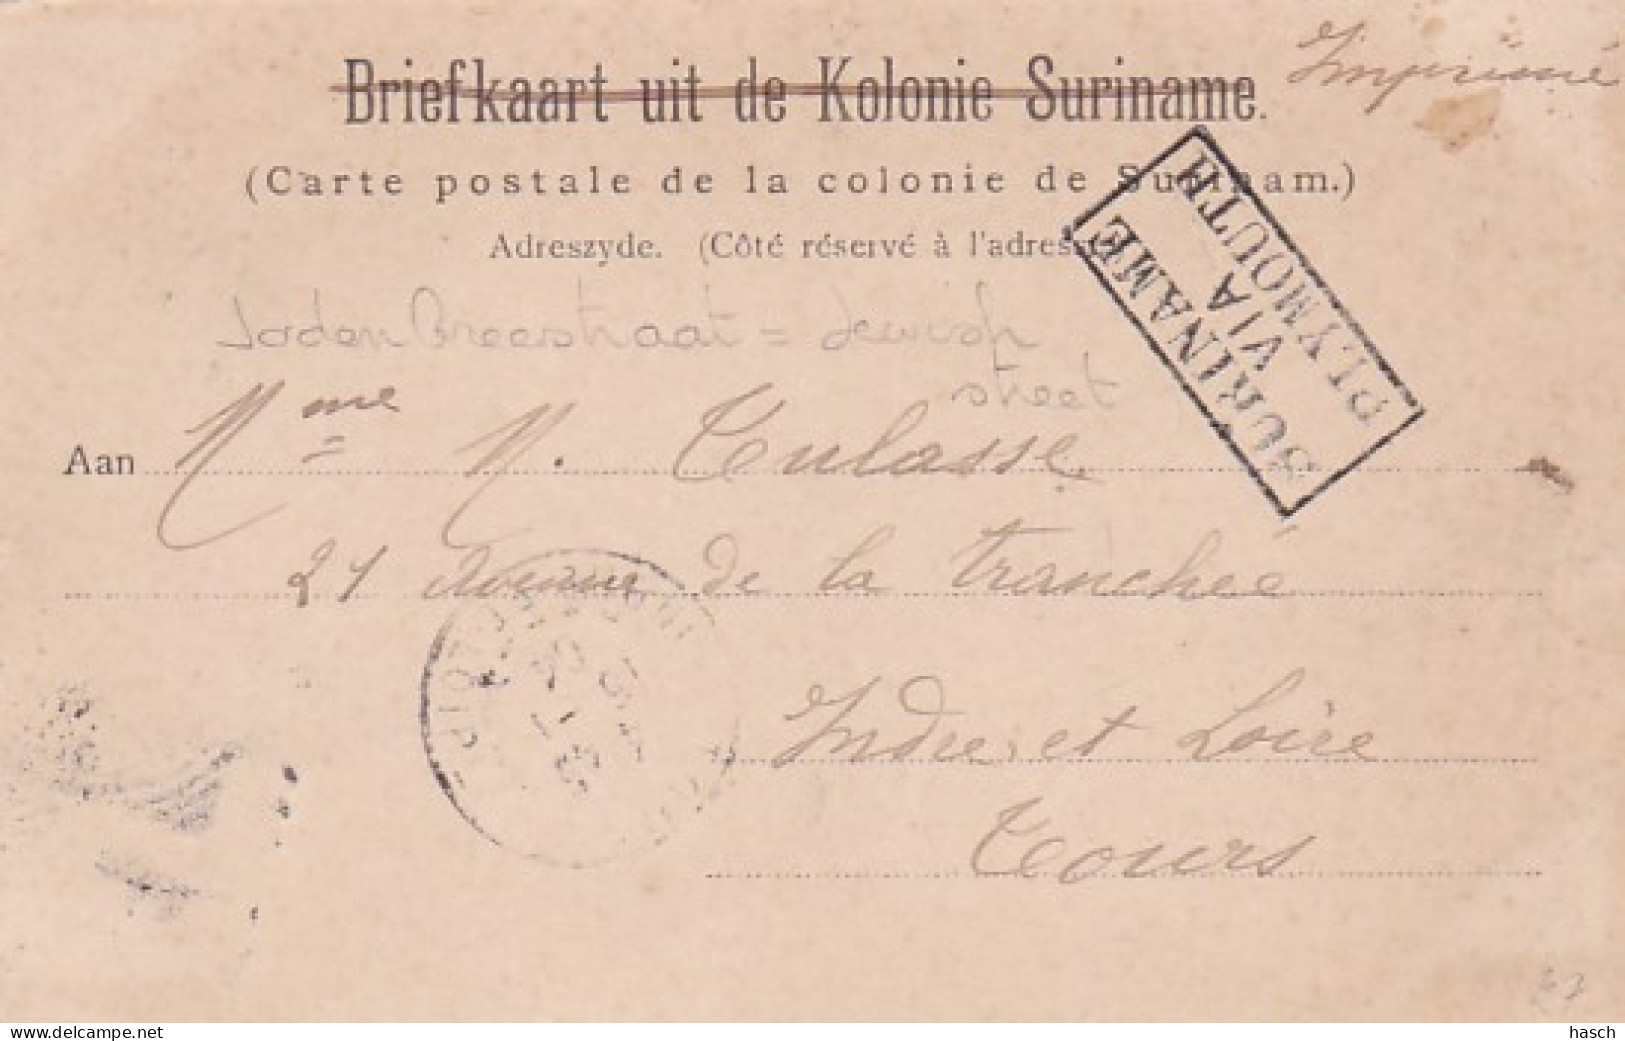 Briefkaart uit de Kolonie Suriname.
Imprimé
(Carte postale de la colonie de Surinam.)
Adreszyde. (Côté réservé à l'adres
SURINAME
VIA
PLYMOUTH
Joden Breestraat = Jewish
street
Aan Mme M. Tulasse
21 Avenue de la tranchée
Indre et Loire
Tours
delcampe.net
hasch